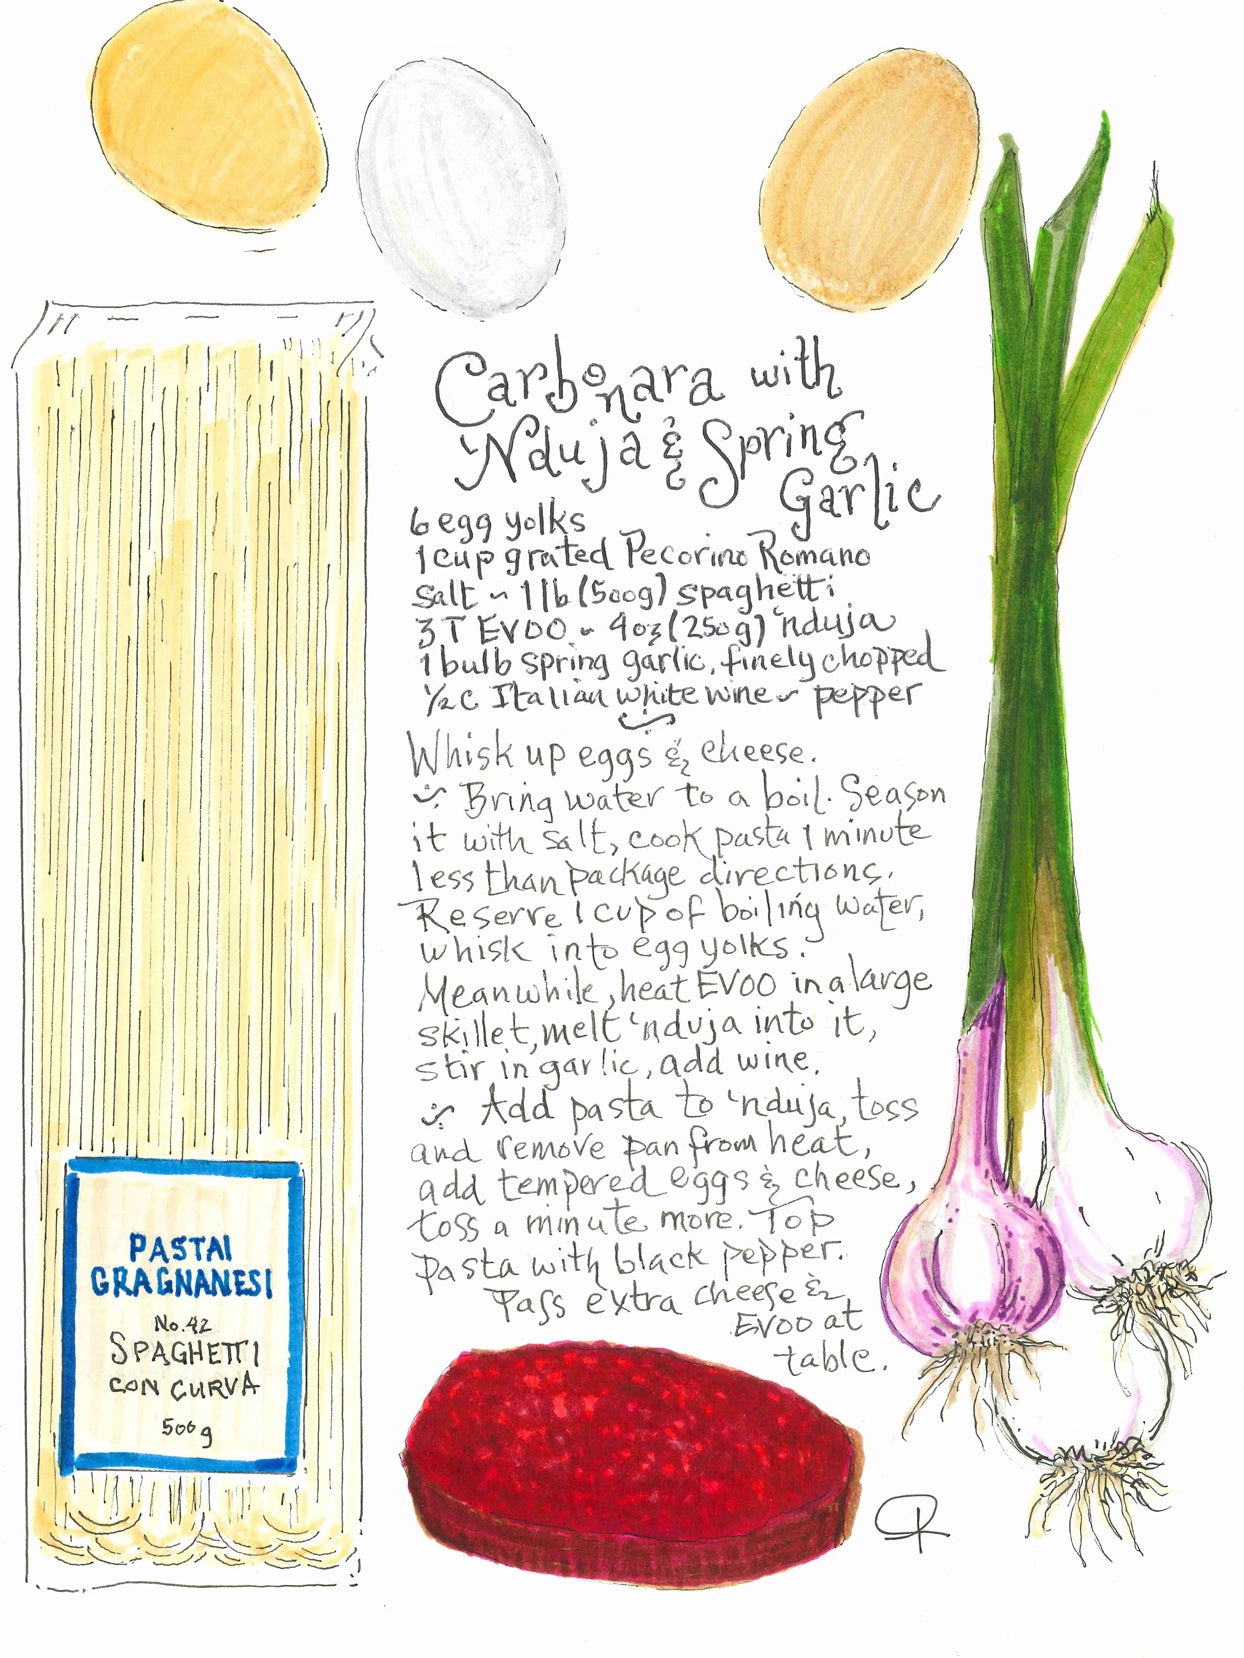 Carbonara with
'Nduja & Spring
Garlic
6 egg yolks
1 cup grated Pecorino Romano
salt ~ 1 lb (500g) spaghetti
3 T EVOO ~ 4oz (250g) 'nduja
1 bulb spring garlic, finely chopped
1/2 c Italian white wine ~ pepper
Whisk up eggs & cheese.
Bring water to a boil. Season
it with salt, cook pasta 1 minute
less than package directions.
Reserve 1 cup of boiling water,
whisk into egg yolks.
Meanwhile, heat EVOO in a large
skillet, melt 'nduja into it,
stir in garlic, add wine.
Add pasta to 'nduja, toss
and remove pan from heat,
add tempered eggs & cheese,
toss a minute more. Top
pasta with black pepper.
Pass extra cheese &
EVOO at
table.
PASTAI
GRAGNANESI
No. 42
SPAGHETTI
CON CURVA
500g